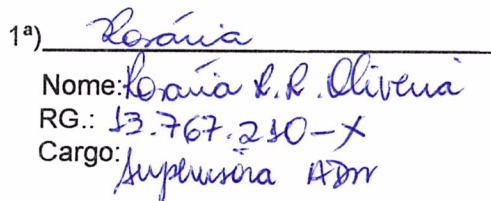 1ª) Rosária
Nome: Rosaria R. R. Oliveira
RG.: 13.767.210-X
Cargo: Supervisora ADM